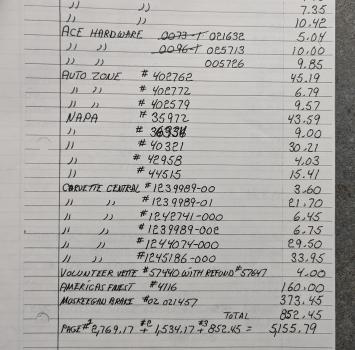 〃 〃 7.35
〃 〃 10.42
ACE HARDWARE 0073-1 021632 5.04
〃 〃 0096-1 025713 10.00
〃 〃 005726 9.85
AUTO ZONE # 402762 45.19
〃 〃 # 402772 6.79
〃 〃 # 402579 9.57
NAPA # 35972 43.59
〃 # 9.00
〃 # 40321 30.21
〃 # 42958 4.03
〃 # 44515 15.41
CORVETTE CENTRAL #1239989-00 3.60
〃 〃 #1239989-01 21.70
〃 〃 #1242741-000 6.45
〃 〃 #1239989-002 6.75
〃 〃 #1244074-000 29.50
〃 〃 #1245186-000 33.95
VOLUNTEER VETTE #57440 WITH REFUND #57647 4.00
AMERICAS FINEST #4116 160.00
MUSKEEGAN BRAKE #02 021457 373.45
TOTAL 852.45
PAGE #1 2,769.17 + #2 1,534.17 + #3 852.45 = 5,155.79